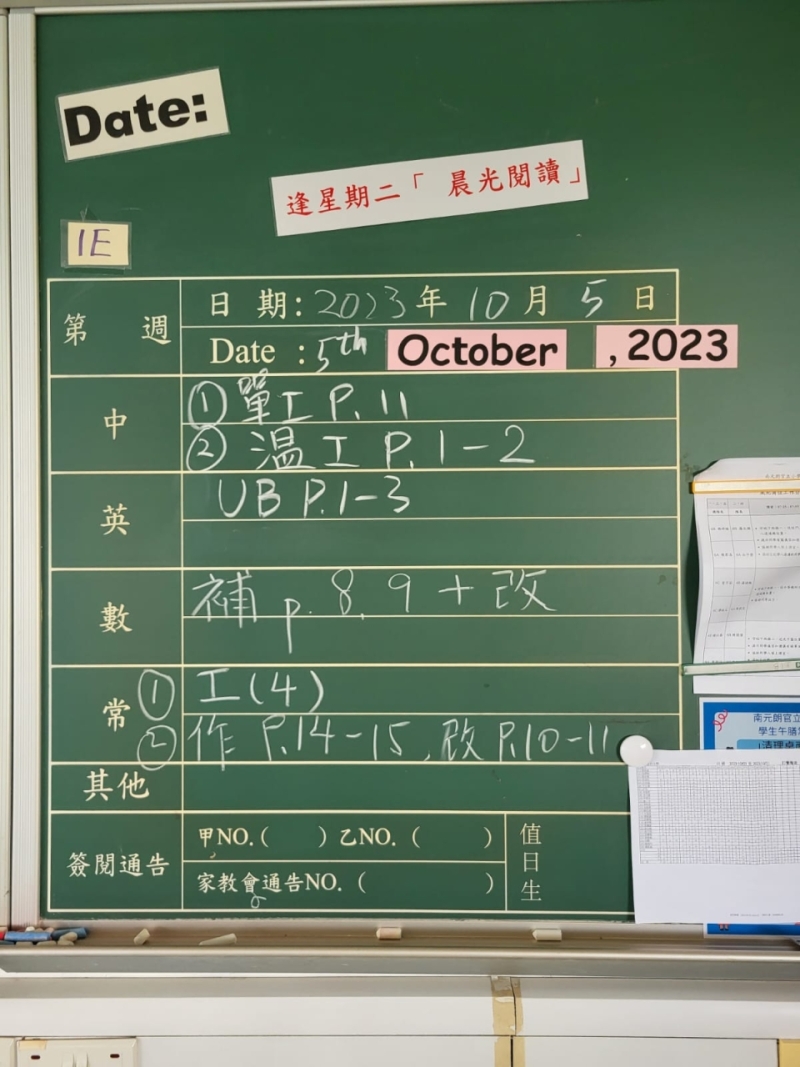 Date:
逢星期二「 晨光閱讀」
1E
第 週
日 期: 2023年 10月 5日
Date : 5th October , 2023
中
① 單工 P. 11
② 温工 P. 1-2
英
UB P.1-3
數
補 p. 8, 9 + 改
常
① 工(4)
② 作 P.14-15, 改 P.10-11
其他
簽閱通告
甲NO.( ) 乙NO. ( )
家教會通告NO. ( )
值日生
南元朗官立
學生午膳